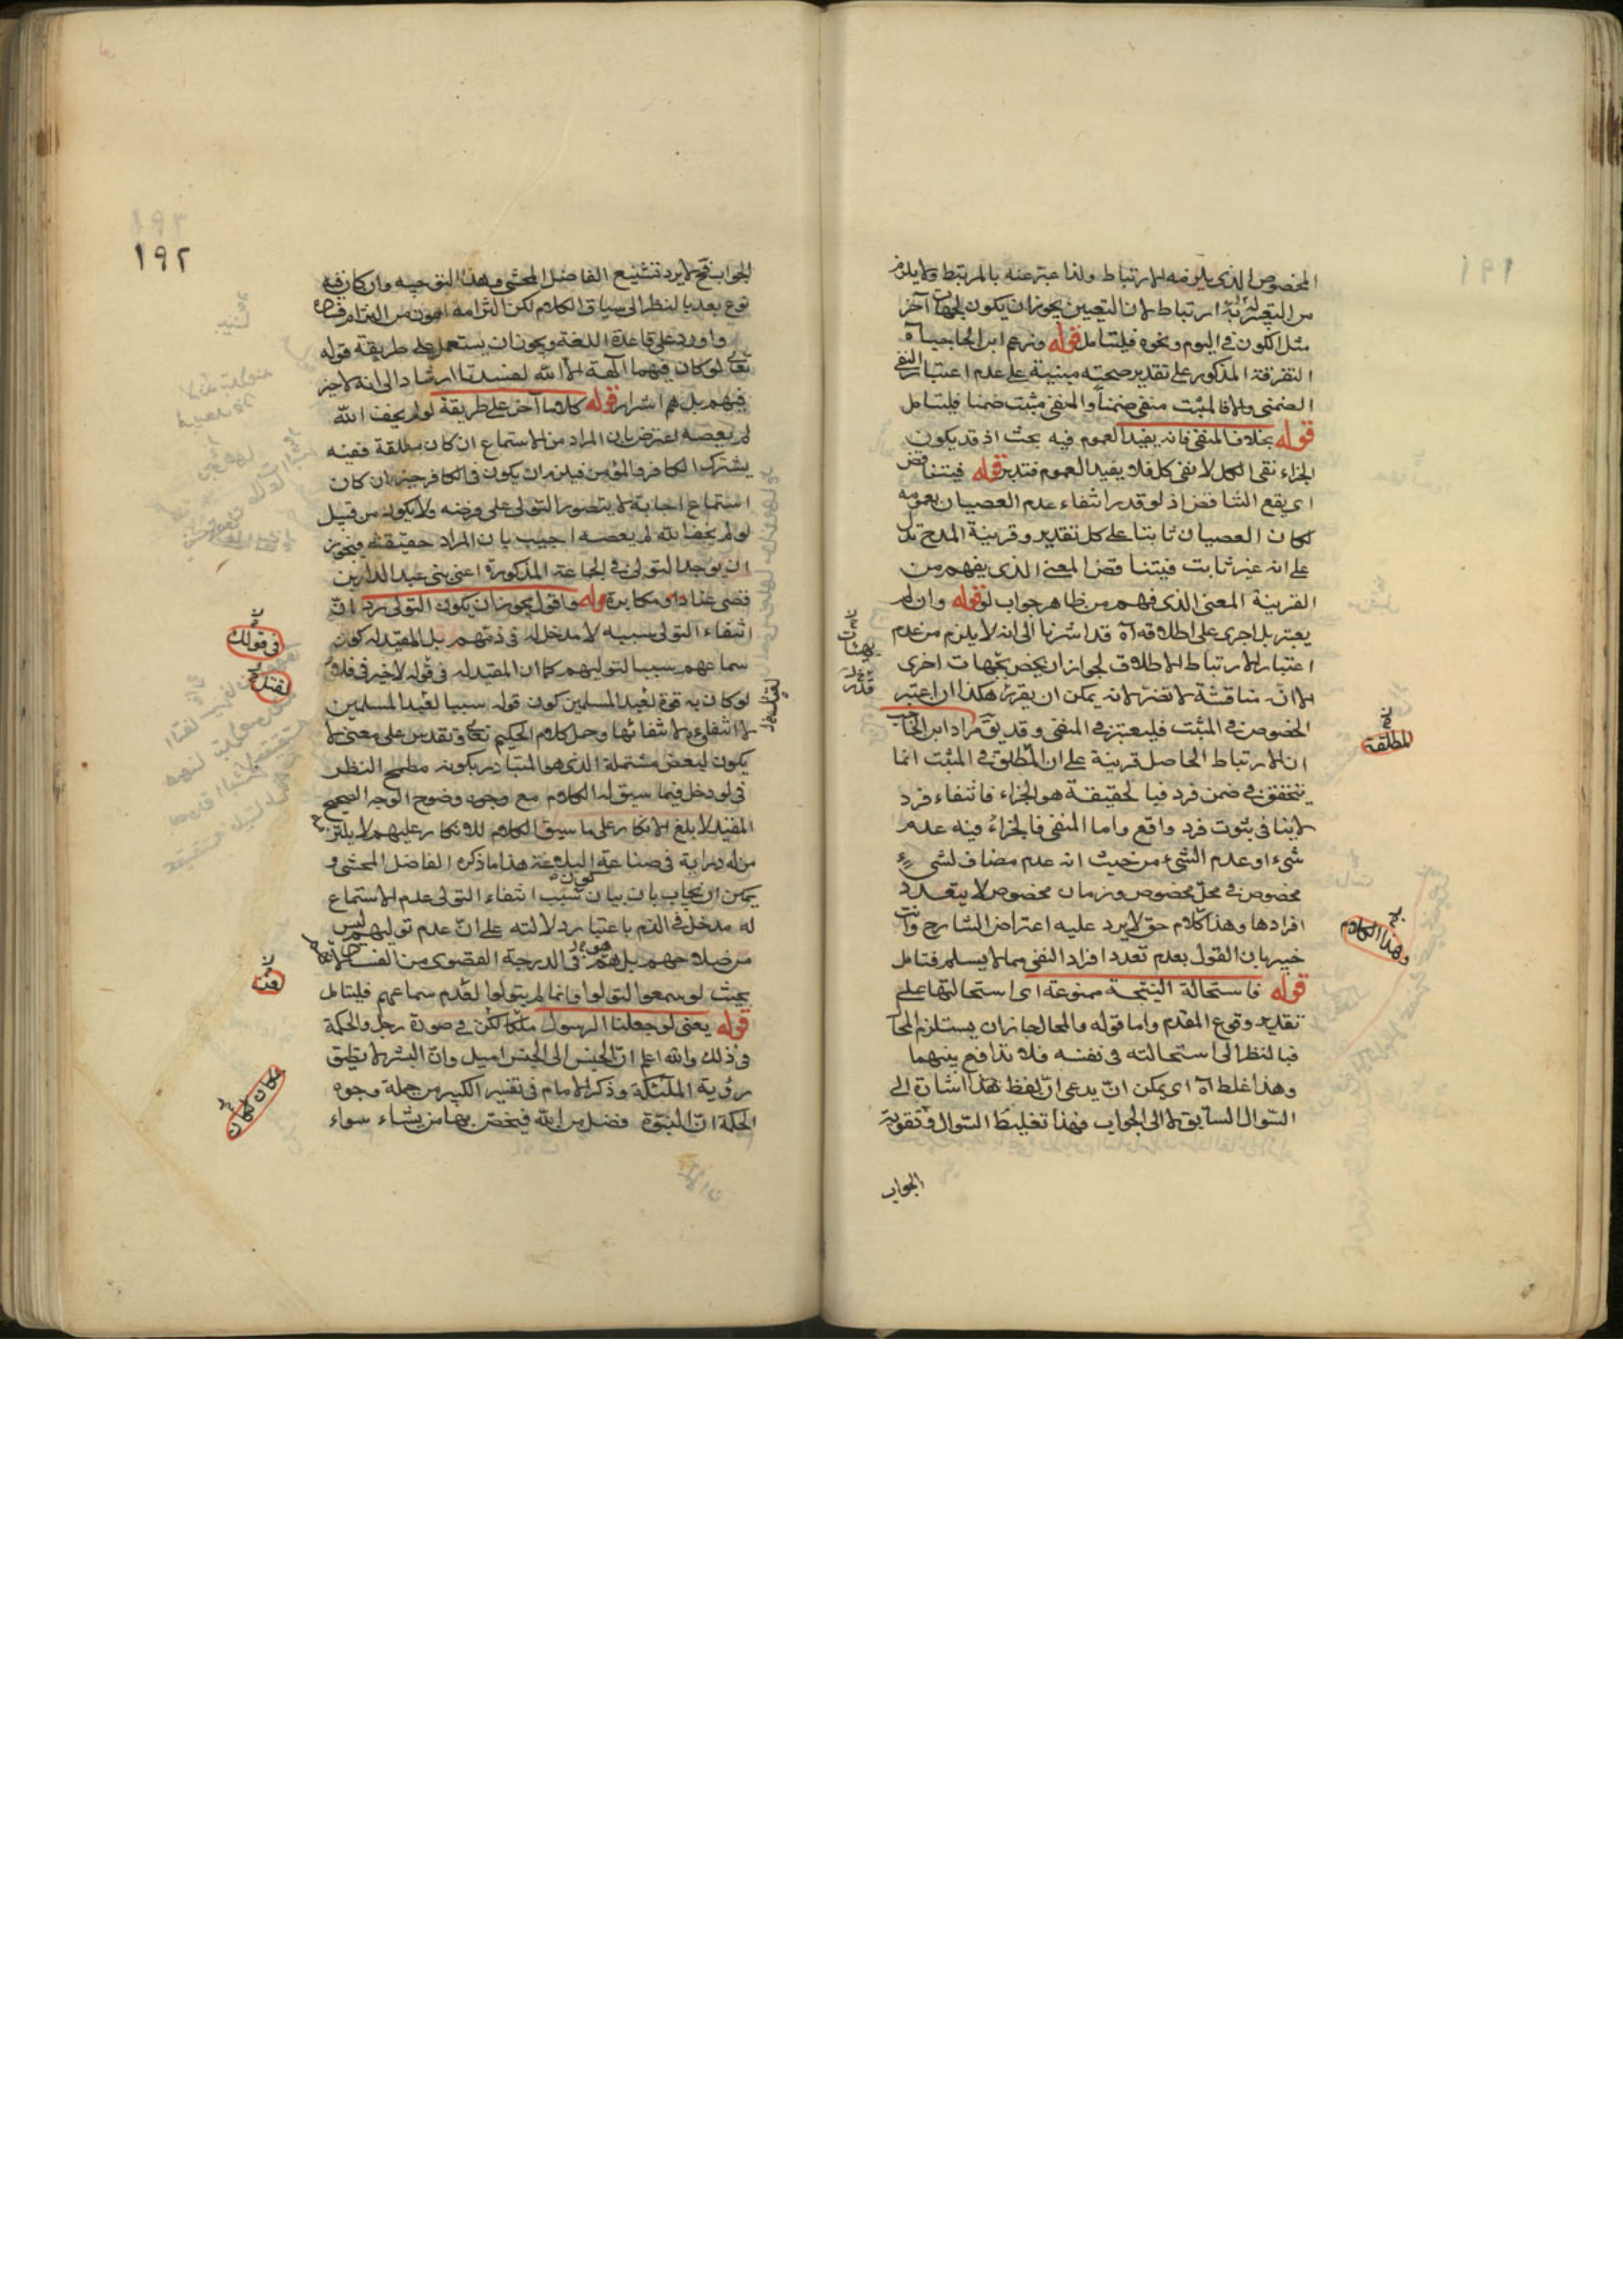 المخصوص الذى يلزمه الارتباط ولذا عبر عنه بالمرتبط ولا يلزم
من التعيين ارتباط لان التعيين يجوز ان يكون بجهات آخر
مثل الكون فى اليوم ونحوه فليتامل قوله وزعم ابن الحاجب آه
التفرقة المذكور على تقدير صحته مبنية على عدم اعتبار النفى
الضمنى والا فالمثبت منفى ضمنا والمنفى مثبت ضمنا فليتامل
قوله بخلاف المنفى فانه يفيد العموم فيه بحث اذ قد يكون
الجزاء نفى الكل لا نفى كل فلا يفيد العموم فتدبر قوله فيتناقض
اى يقع التناقض اذ لو قدر انتفاء عدم العصيان بعمومه
لكان العصيان ثابتا على كل تقدير وقرينة المدح تدل
على انه غير ثابت فيتناقض المعنى الذى يفهم من
القرينة المعنى الذى فهم من ظاهر جواب لو قوله وان لم
يعتبر بل اجرى على اطلاقه آه قد اشرنا الى انه لا يلزم من عدم
اعتبار الارتباط الاطلاق لجواز ان يخص بجهات اخرى
الا انه مناقشة لا تضر لانه يمكن ان يقرر هكذا ان اعتبر
الخصوص فى المثبت فليعتبر فى المنفى وقد يق مراد ابن الحاجب
ان الارتباط الحاصل قرينة على ان المطلق فى المثبت انما
يتحقق فى ضمن فرد فبالحقيقة هو الجزاء فانتفاء فرد
لا ينافى ثبوت فرد واقع واما المنفى فالجزاء فيه عدم
شىء او عدم الشىء من حيث انه عدم مضاف لشىء
مخصوص فى محل مخصوص وزمان مخصوص لا يتعدد
افرادها وهذا كلام حق لا يرد عليه اعتراض الشارح وانت
خبير بان القول بعدم تعدد افراد النفى مما لا يسلم فتامل
قوله فاستحالة النتيجة ممنوعة اى استحالتها على
تقدير وقوع المقدم واما قوله والمحال جاز ان يستلزم المحا
فبالنظر الى استحالته فى نفسه فلا تدافع بينهما
وهذا غلط آه اى يمكن ان يدعى ان لفظ هذا اشارة الى
السؤال السابق لا الى الجواب فهذا تغليط السؤال وتقوية
الجواب
المطلقة
وهذا الكلام
١٩١
١٩٢
الجواب فح لا يرد تشنيع الفاضل المحشى وهذا التوجيه وان كان فيه
نوع بعد بالنظر الى سياق الكلام لكن التزامه اهون من التزام
واورد على قاعدة اللغة ويجوز ان يستعمل على طريقة قوله
تعالى لو كان فيهما آلهة الا الله لفسدتا ارشادا الى انه لا خير
فيهم بل هم اشرار قوله كلاما آخر على طريقة لو لم يخف الله
لم يعصه اعترض بان المراد من الاستماع ان كان مطلقة ففيه
يشترك الكافر والمؤمن فيلزم ان يكون فى الكافر خير وان كان
استماع اجابة لا يتصور التولى على فرضه ولا يكون من قبيل
لو لم يخف الله لم يعصه اجيب بان المراد حقيقته فيجوز
ان يوجد التولى فى الجماعة المذكورة اعنى بنى عبد الدار بن
قصى عنادا ومكابرة قوله واقول يجوز ان يكون التولى يرد ان
انتفاء التولى سببه لا مدخل له فى ذمهم بل المفيد له كون
سماعهم سببا لتوليهم كما ان المفيد له فى قوله لا خير فى فلان
لو كان به قوة لقتل المسلمين كون قوته سببا لقتل المسلمين
لا انتفاؤه ولا انتفائها وحمل كلام الحكيم تعالى وتقدس على معنى لا
يكون لبعض مشتملة الذى هو المتبادر بكونه مطمح النظر
فى لو دخل فيما سيق له الكلام مع وجود وضوح الوجه الصحيح
المفيد لا بلغ الانكار على ما سيق الكلام للانكار عليهم لا يلتزمه
من له دراية فى صناعة البلاغة هذا ما ذكره الفاضل المحشى و
يمكن ان يجاب بان بيان سبب انتفاء التولى عدم الاستماع
له مدخل فى الذم باعتبار دلالته على ان عدم توليهم ليس
من صلاحهم بل هم فى الدرجة القصوى من الفساد
بحيث لو سمعوا لتولوا وانما لم يتولوا لعدم سماعهم فليتامل
قوله يعنى لو جعلنا الرسول ملكا لكن فى صورة رجل والحكمة
فى ذلك والله اعلم ان الجنس الى الجنس اميل وان البشر لا يطيق
رؤية الملئكة وذكر الامام فى تفسير الكبير من جملة وجوه
الحكمة ان النبوة فضل من الله فيختص بها من يشاء سواء
فى قولك
لقتل
فت
مكان كان